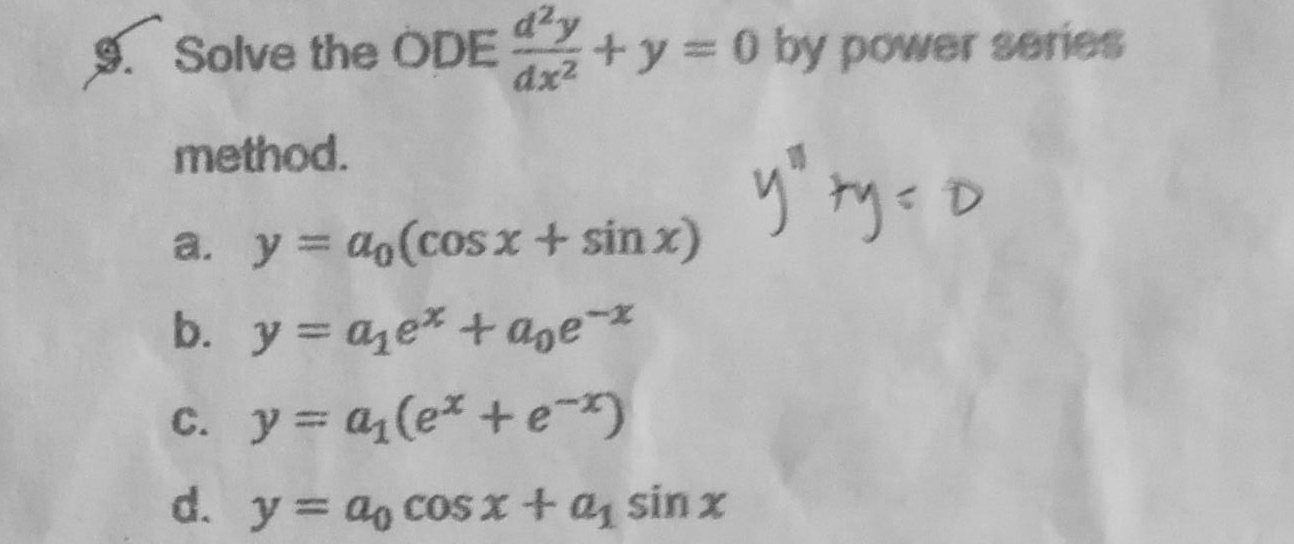 9. Solve the ODE d²y/dx² + y = 0 by power series
method.
y" + y = 0
a. y = a₀(cos x + sin x)
b. y = a₁eˣ + a₀e⁻ˣ
c. y = a₁(eˣ + e⁻ˣ)
d. y = a₀ cos x + a₁ sin x